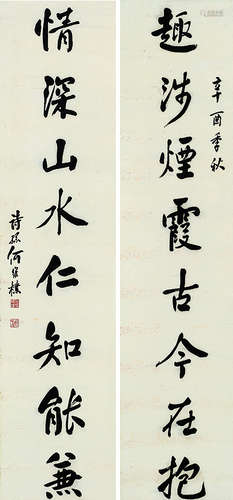 趣涉煙霞古今在抱
辛酉季秋
情深山水仁知能兼
詩孫何維樸